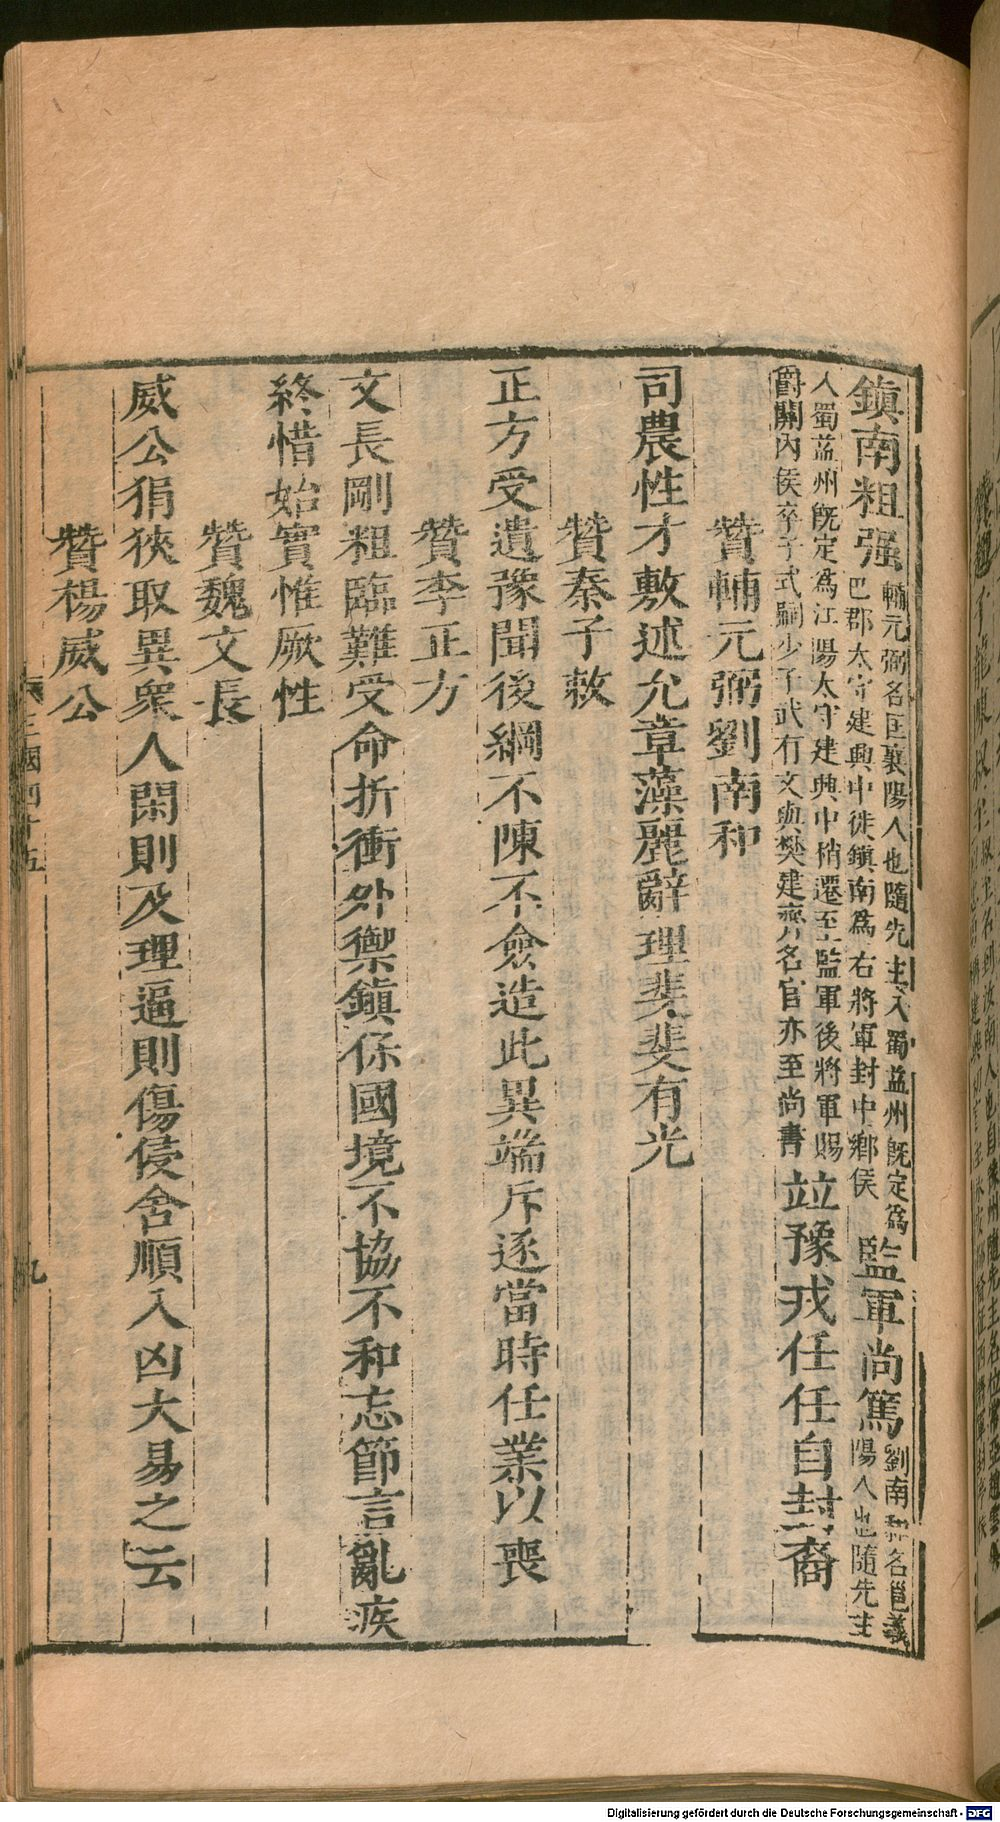 鎮南粗强輔元弼名匡襄陽人也隨先主入蜀益州既定爲巴郡太守建興中徙鎮南爲右將軍封中鄉侯監軍尚篤劉南和名邕義陽人也隨先主
入蜀益州既定爲江陽太守建興中稍遷至監軍後將軍賜爵關內侯卒子式嗣少子武有文與樊建齊名官亦至尚書竝豫戎任任自封裔
贊輔元弼劉南和
司農性才敷述允章藻麗辭理斐斐有光
贊秦子敕
正方受遺豫聞後綱不陳不僉造此異端斥逐當時任業以喪
贊李正方
文長剛粗臨難受命折衝外禦鎮保國境不協不和忘節言亂疾
終惜始實惟厥性
贊魏文長
威公狷狹取異衆人閑則及理逼則傷侵舍順入凶大易之云
贊楊威公
三國四十五
九
Digitalisierung gefördert durch die Deutsche Forschungsgemeinschaft - DFG